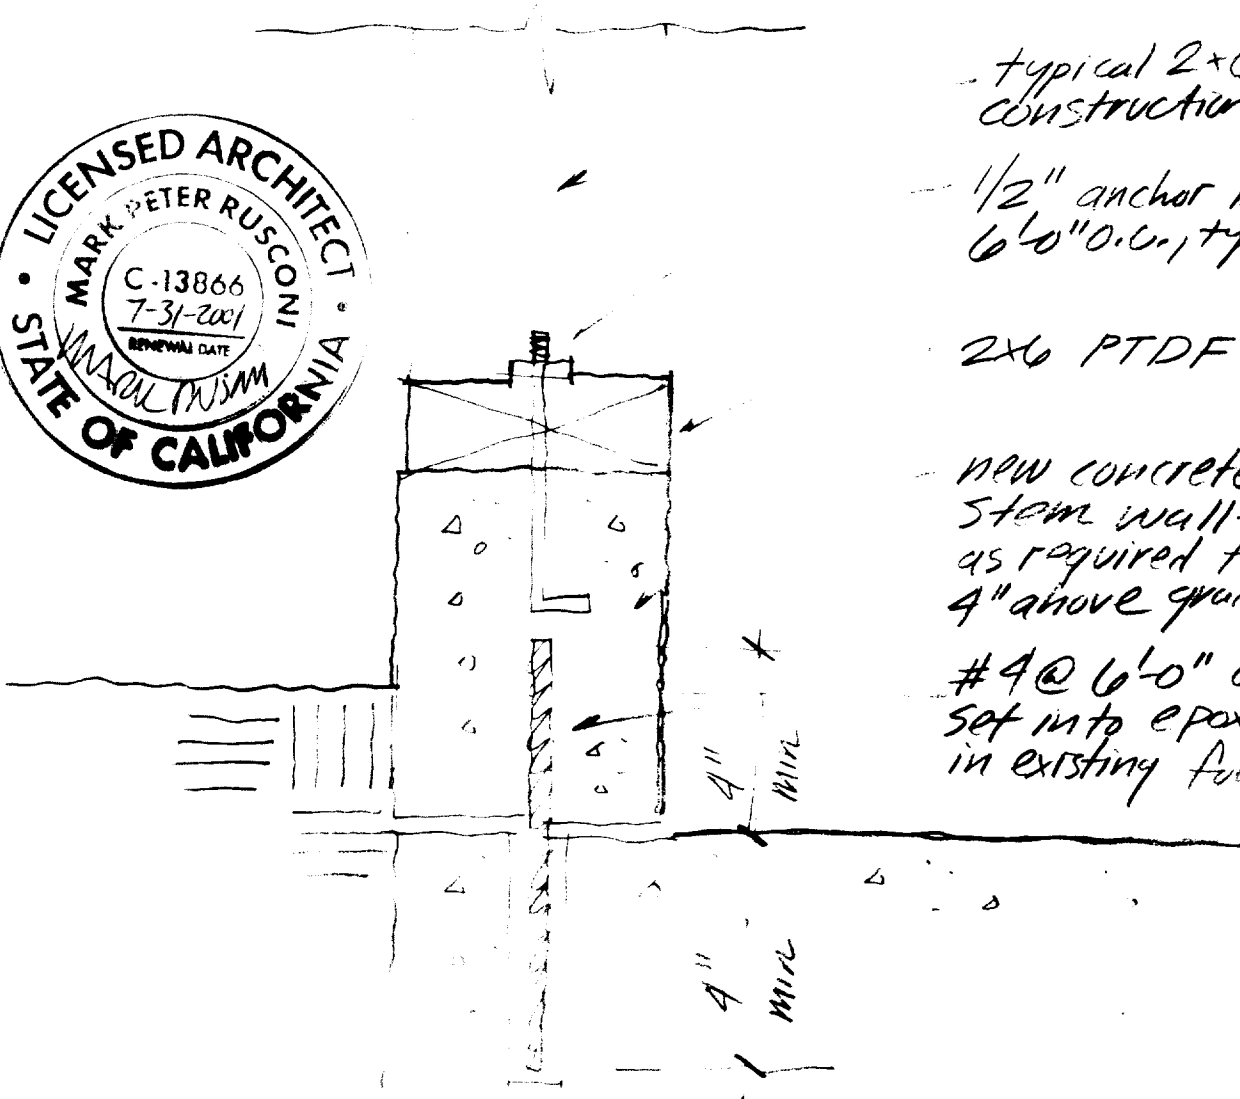 LICENSED ARCHITECT
MARK PETER RUSCONI
C-13866
7-31-2001
RENEWAL DATE
STATE OF CALIFORNIA
typical 2x
construction
1/2" anchor
6'-0" O.C., ty
2x6 PTDF
new concrete
stem wall-
as required t
4" above gra
#4@ 6'-0" o
set into epox
in existing fo
4"
min
4"
min